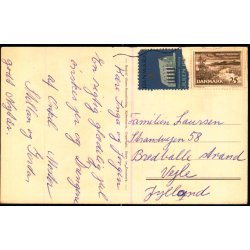 Kære Inga og Jørgen
En rigtig glædelig jul
ønskes jer og Drengene
af Onkel Martin
Gott Nytår.
DANMARK
25
Familien Laursen
Strandvejen 58
Bredballe Strand
Vejle
Jylland